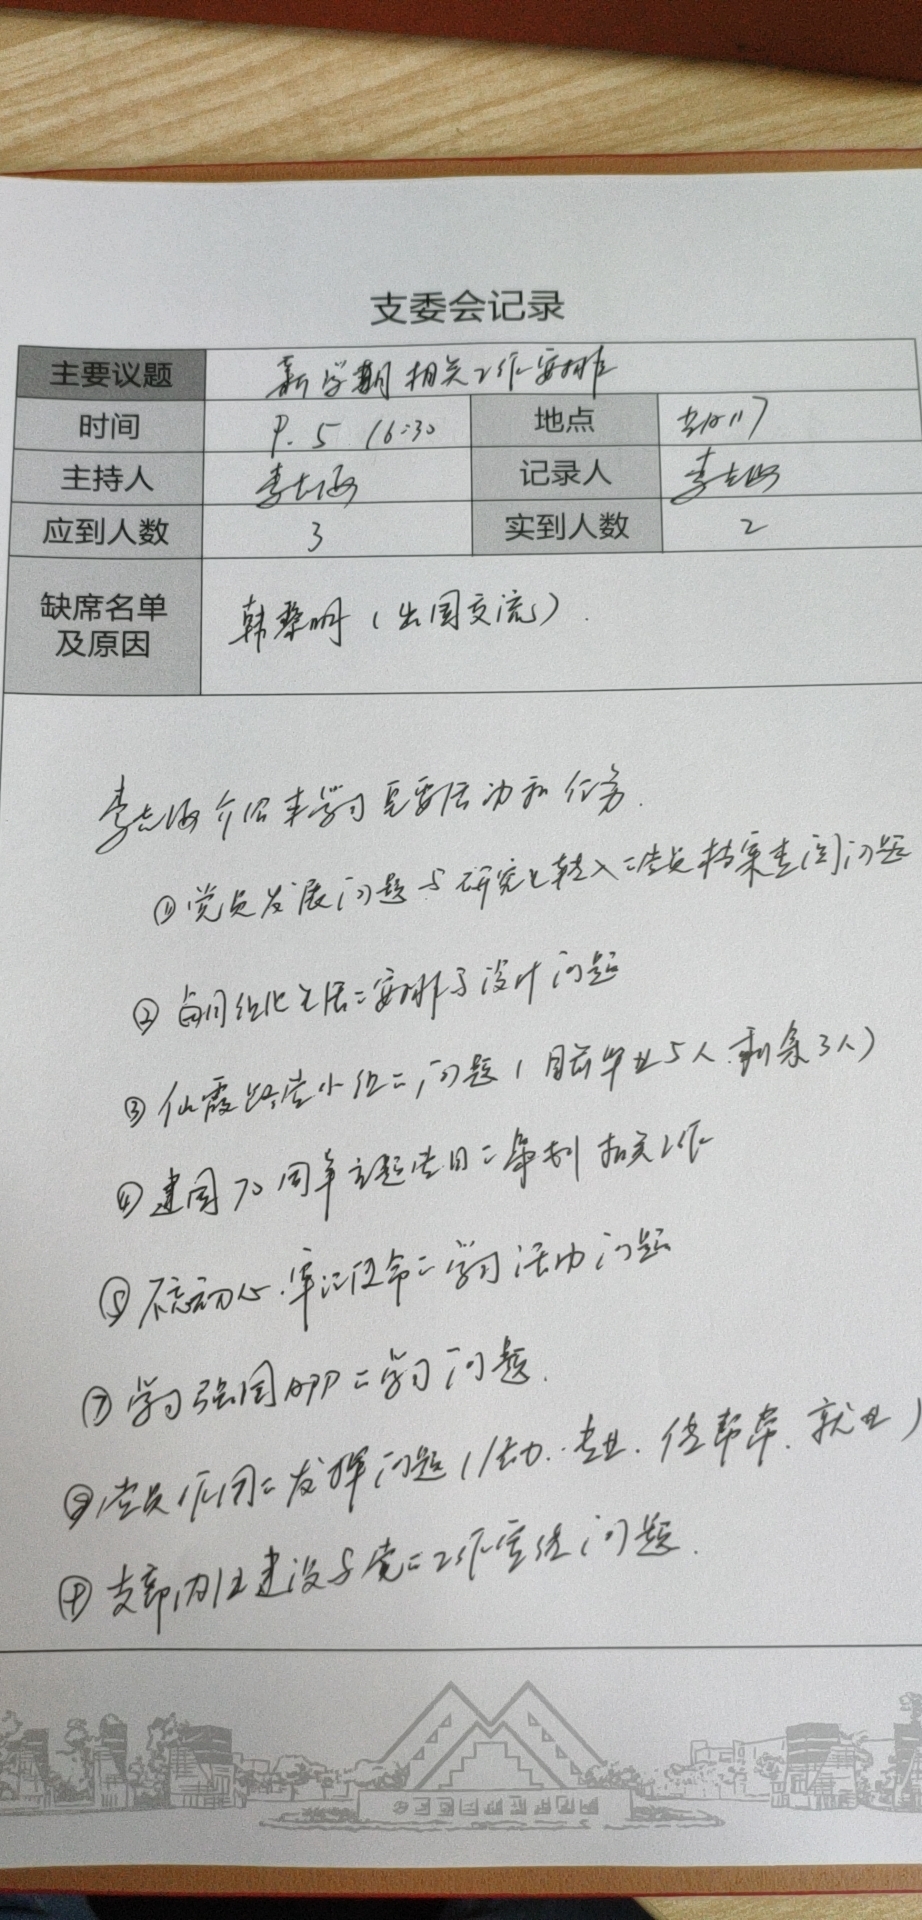 支委会记录
主要议题 新学期相关工作安排
时间 9.5 16:30 地点
主持人 李志 记录人 李志
应到人数 3 实到人数 2
缺席名单 韩黎明（出国交流）.
及原因
李志 介绍本学习主要活动和任务.
①党员发展问题与研究生转入二党员档案查阅问题
②每月组织生活二安排与设计问题
③仙霞路党小组二问题（目前毕业5人.剩余3人）
④建国70周年主题党日二筹划相关工作
⑤不忘初心.牢记使命二学习活动问题
⑦学习强国APP二学习问题.
⑧党员作用二发挥问题（活动..专业.传帮带.就业）
⑨支部 建设与党二工作 问题.